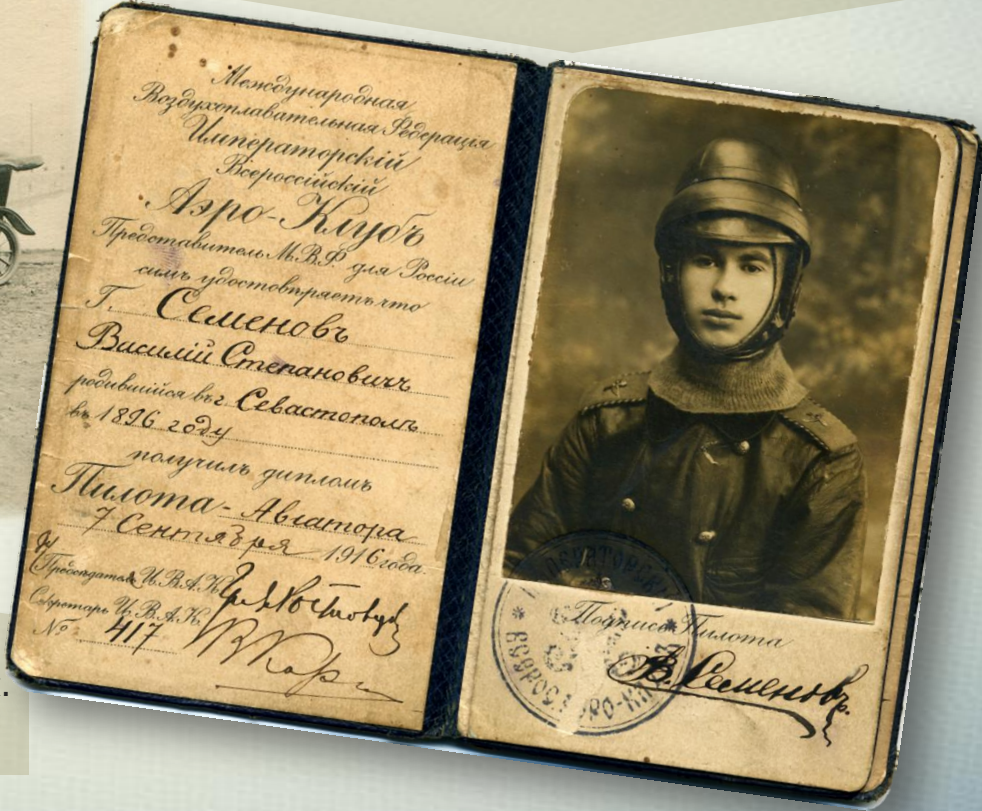 Международная
Воздухоплавательная Федерація
Императорскій
Всероссійскій
Аэро-Клубъ
Представитель М.В.Ф. для Россіи
симъ удостовѣряетъ что
Г. Семеновъ
Василій Степановичъ
родившійся въ г. Севастополѣ
въ 1896 году
получилъ дипломъ
Пилота-Авіатора
7 Сентября 1916 года.
Предсѣдатель И.В.А.К.
Секретарь И.В.А.К.
№ 417
Подпись Пилота
В. Семеновъ.